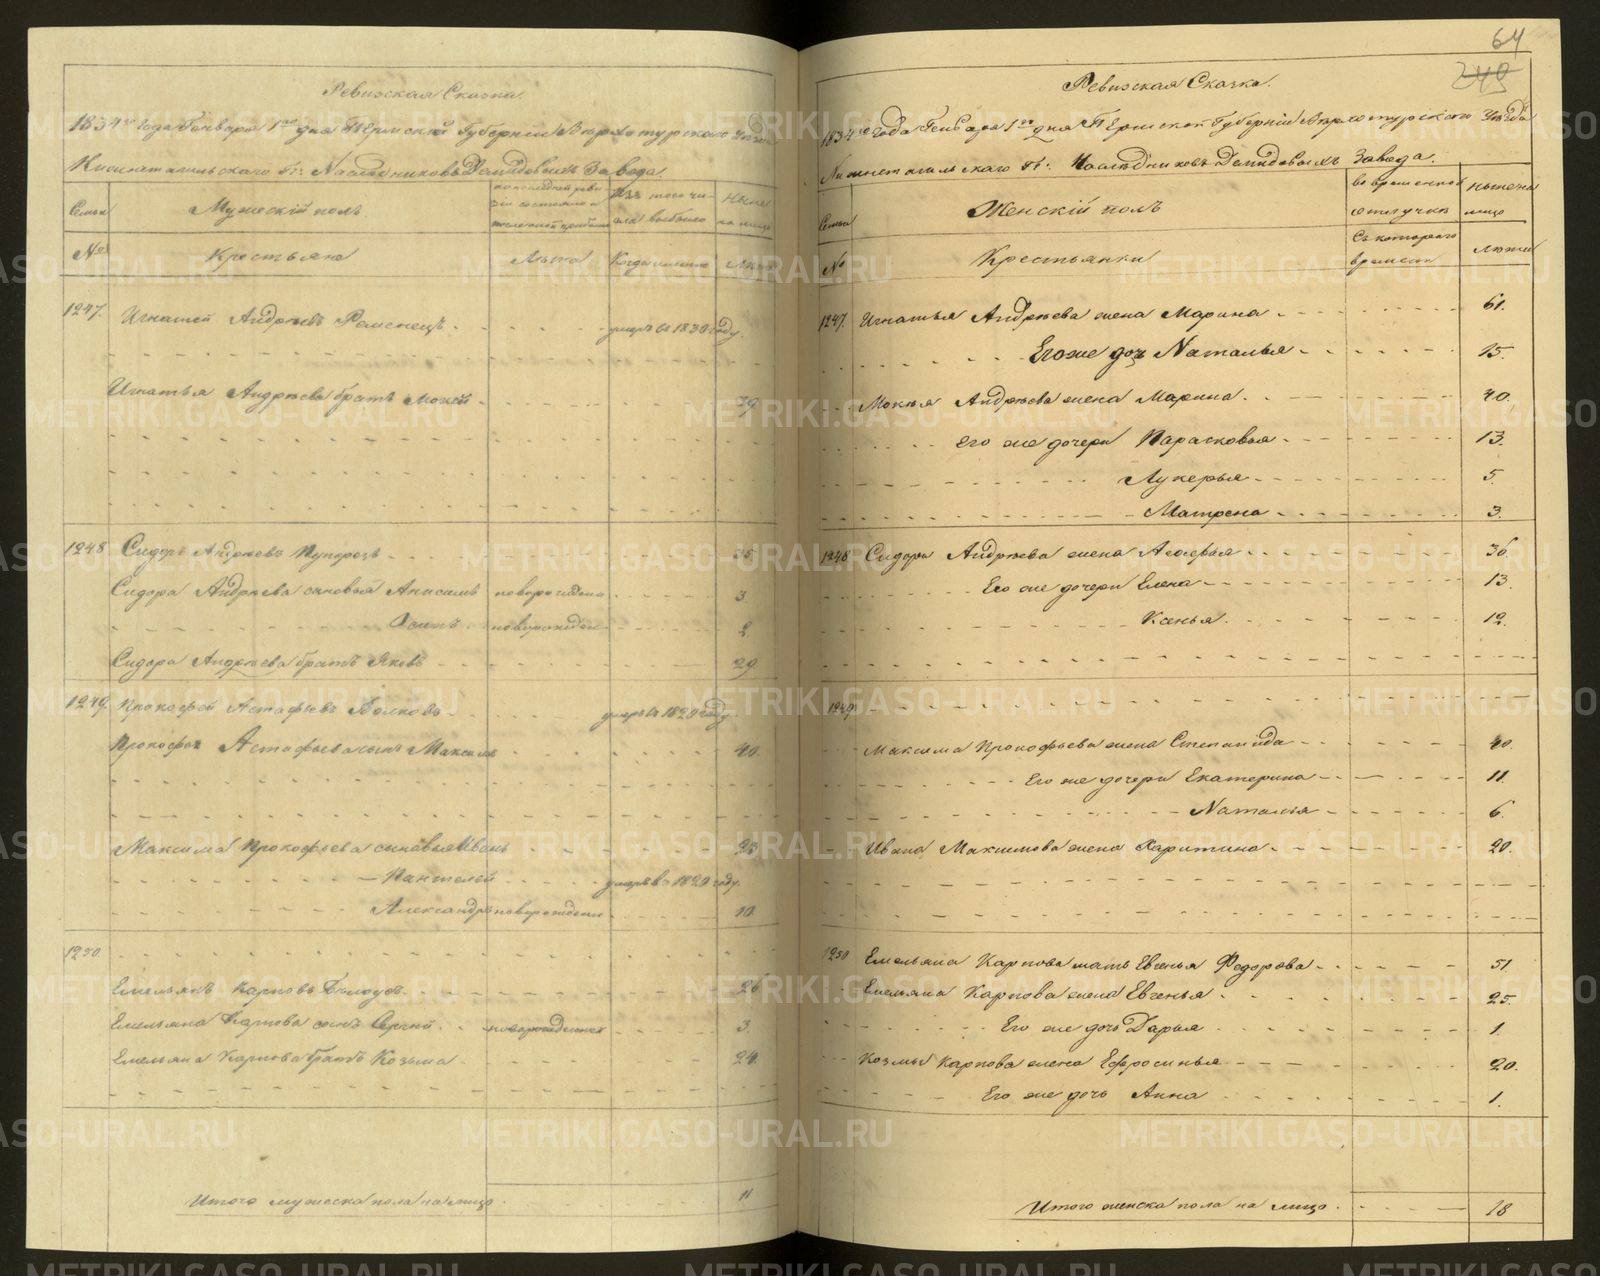 Ревизская Сказка.
1834го года Генваря 1го дня Пермской Губернии Верхотурскаго Уезда
Нижнетагильскаго Гг: Наследниковъ Демидовыхъ Завода.
Семьи
Мужескій полъ.
по последней ревизіи состояло и после оной прибыло
Изъ того числа выбыло
Ныне на лицо
№
Крестьяне
Лета
Когда именно
Лета
1247. Игнатей Андреевъ умеръ въ 1830 году.
Игнатья Андреева братъ Мокей 39
1248 Сидоръ Андреевъ 35
Сидора Андреева сыновья Анисимъ новорожденъ 3.
Осипъ новорожден. 2
Сидора Андреева братъ Яковъ 29.
1249. Прокофей Астафьевъ Волковъ умеръ въ 1829 году.
Прокофья Астафьева сынъ Максимъ 40.
Максима Прокофьева сыновья Иванъ 23
Пантелей умеръ в 1829 году.
Александръ новорожден. 10.
1250.
Емельянъ Карповъ Белоусъ. 26
Емельяна Карпова сынъ Сергей новорожденной 3.
Емельяна Карпова братъ Козьма 24.
Итого мужеска пола на лицо. 11
64
Ревизская Сказка.
1834го года Генваря 1го дня Пермской Губерніи Верхотурскаго Уезда
Нижнетагильскаго Гг: Наследниковъ Демидовыхъ Завода.
Семьи
Женскій полъ
во временной отлучке
ныне на лицо
№
Крестьянки
Съ котораго времени
лета
1247. Игнатья Андреева жена Марина 61.
Его же дочь Наталья 15.
Мокея Андреева жена Марина. 40.
Его же дочери Парасковья 13.
Лукерья 5.
Матрена 3.
1248 Сидора Андреева жена Агафья 36.
Его же дочери Елена 13.
Ксенья. 12.
1249.
Максима Прокофьева жена Степанида 40.
Его же дочери Екатерина 11.
Наталья 6.
Ивана Максимова жена Харитина 20.
1250 Емельяна Карпова мать Евгенья Федорова 51.
Емельяна Карпова жена Евгенья. 25.
Его же дочь Дарья 1.
Козмы Карпова жена Ефросинья 20.
Его же дочь Анна 1.
Итого женска пола на лицо. 18
METRIKI.GASO-URAL.RU